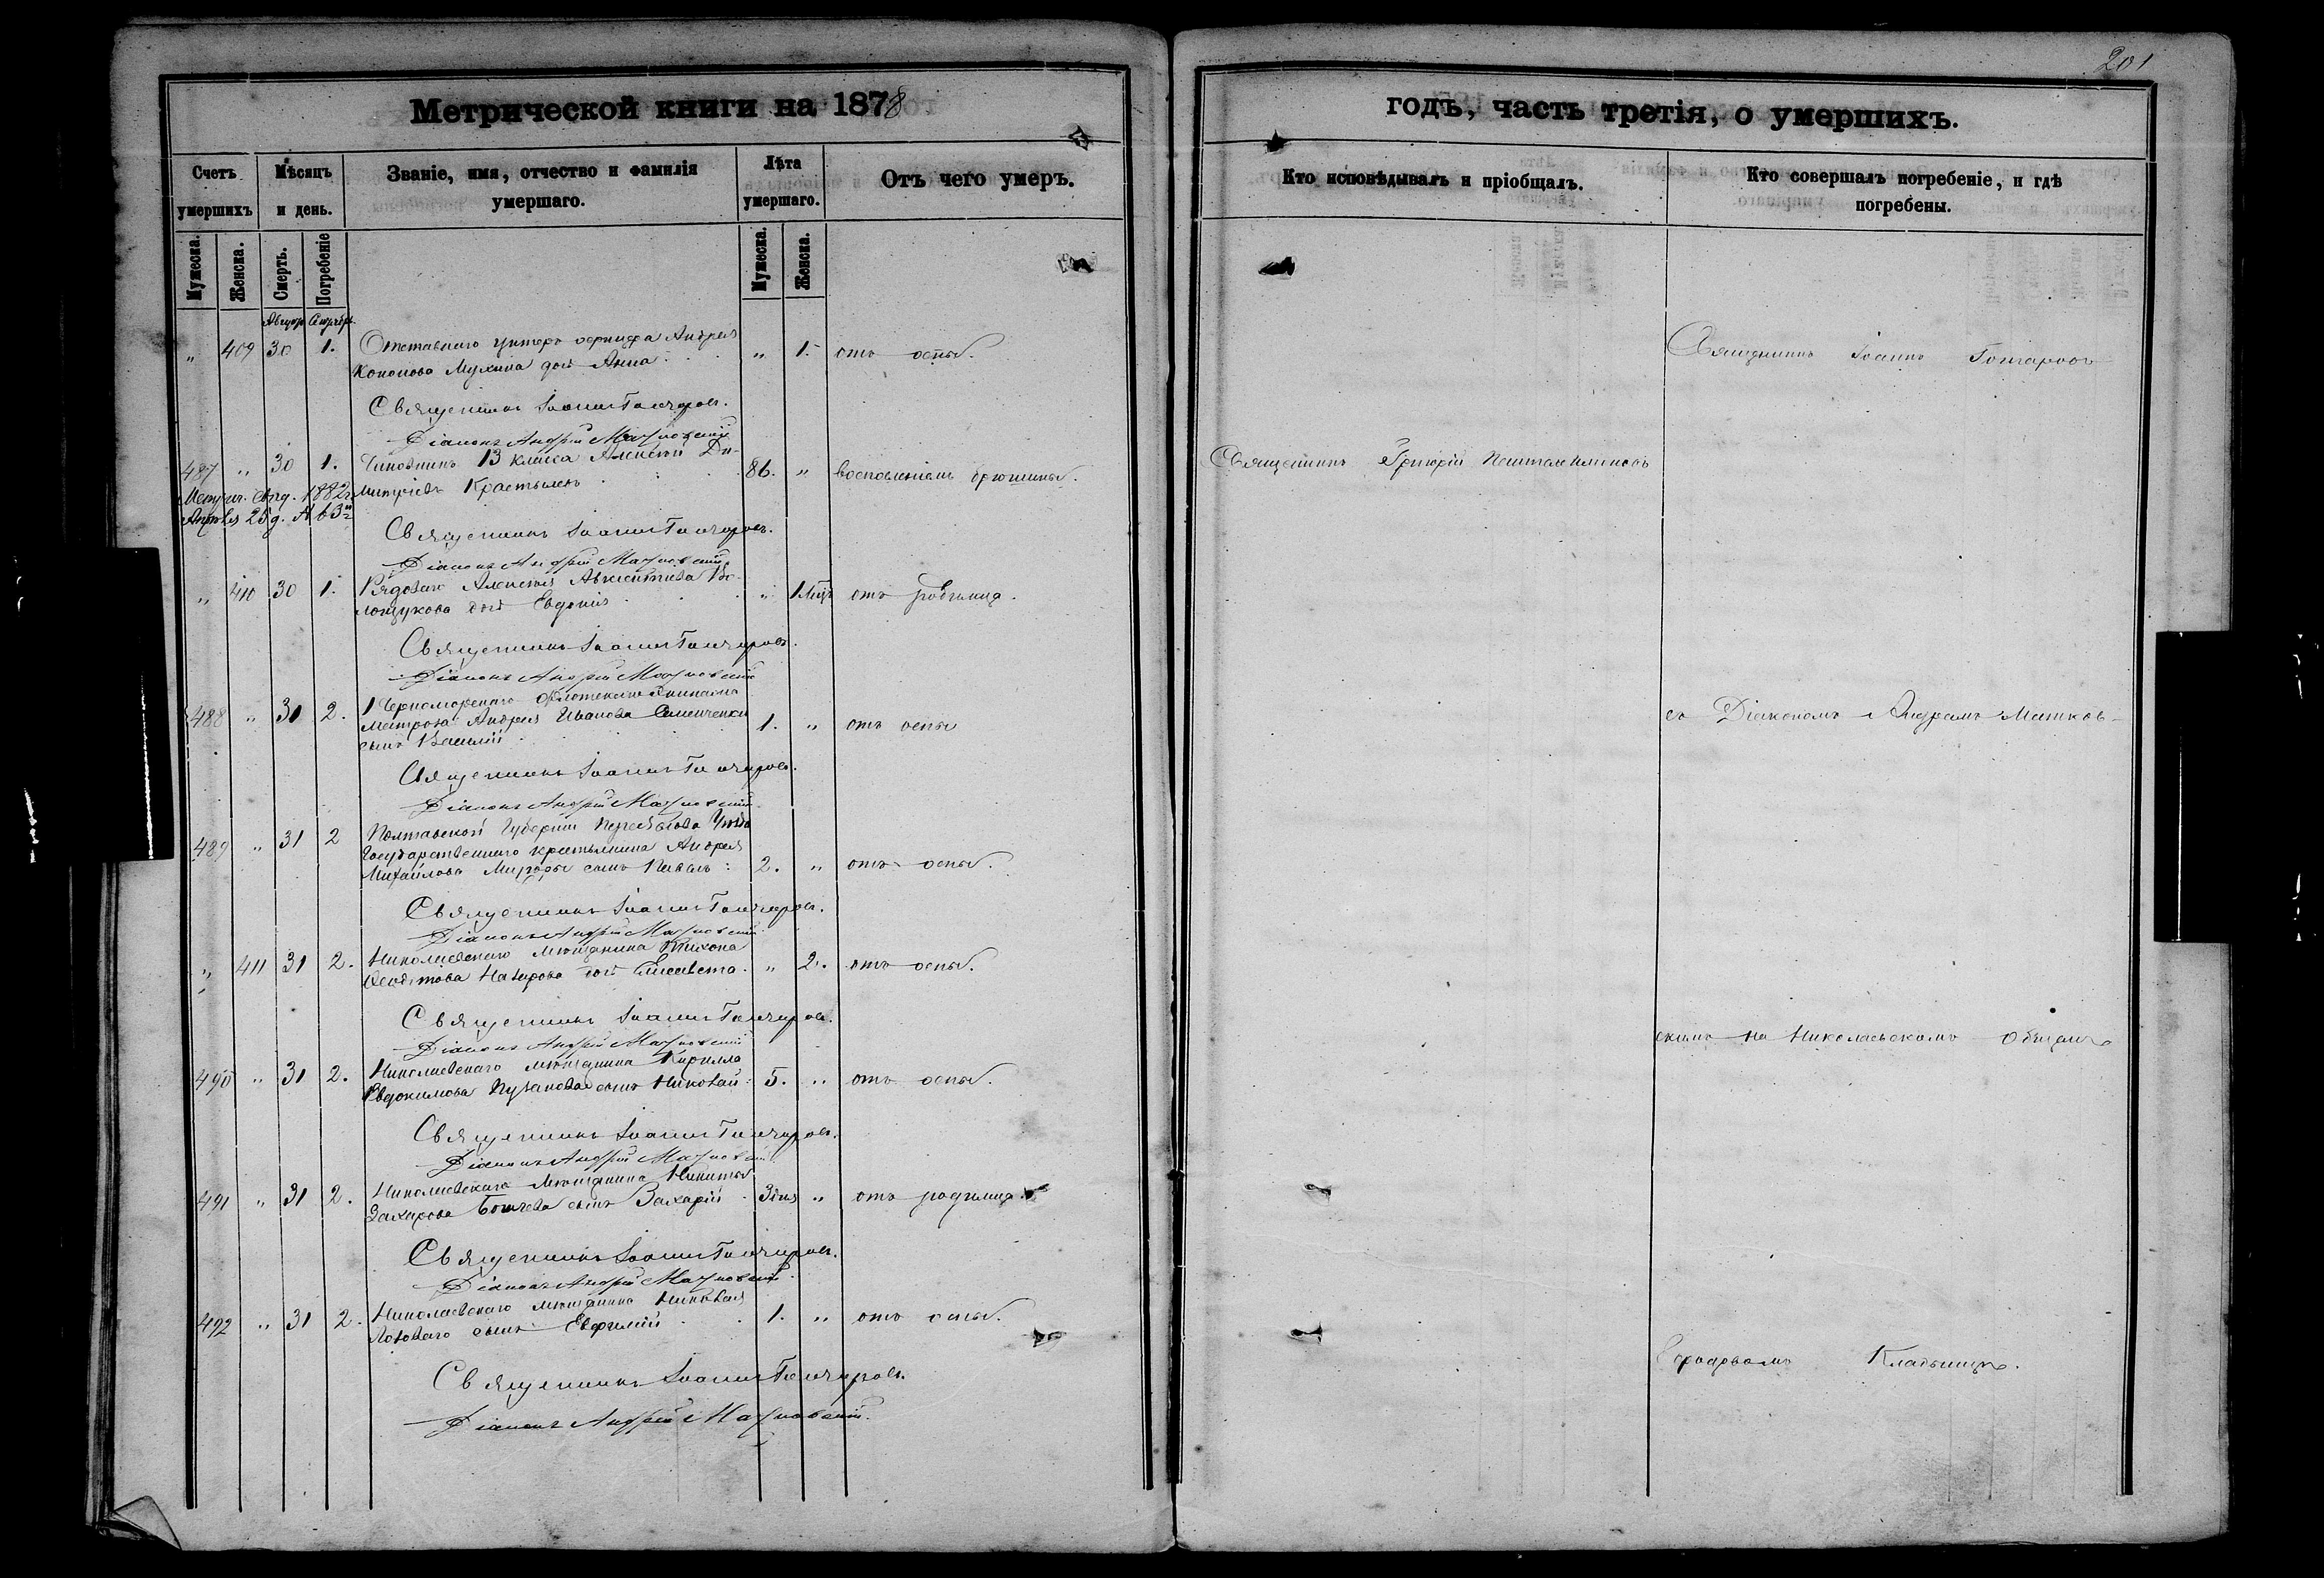 201
Метрической книги на 1878
годъ, часть третія, о умершихъ.
Счетъ умершихъ
Мѣсяцъ и день.
Званіе, имя, отчество и фамилія умершаго.
Лѣта умершаго.
Отъ чего умеръ.
Кто исповѣдывалъ и пріобщалъ.
Кто совершалъ погребеніе, и гдѣ погребены.
Мужеска.
Женска.
Смерть.
Погребеніе
Мужеска.
Женска.
„ 409 30 1. Отставнаго унтеръ офицера Андрея „ 1. отъ оспы.
Кононова Мухина дочь Анна
Священникъ Іоаннъ Гончаровъ
Священникъ Іоаннъ Гончаровъ.
Діаконъ Андрей
487 „ 30 1. Чиновникъ 13 класса Алексѣй Ди- 86. „ воспаленіемъ брюшины.
митріевъ
Священникъ Григорій
Метрич. свид. 1882 г.
Апрѣля 25 д. № 63
Священникъ Іоаннъ Гончаровъ.
Діаконъ Андрей
„ 410 30 1. Рядоваго Алексѣя Авксентіева „ 1 мѣс. отъ родимца.
дочь Евдокія
Священникъ Іоаннъ Гончаровъ.
Діаконъ Андрей
488 „ 31 2. 1 Черноморскаго флотскаго экипажа
матроса Андрея Иванова Семенченки 1. „ отъ оспы
сынъ Василій
съ Діакономъ Андреемъ
Священникъ Іоаннъ Гончаровъ.
Діаконъ Андрей
489 „ 31 2 Полтавской Губерніи Уѣзда
Государственнаго крестьянина Андрея
Михайлова сынъ Павелъ 2. „ отъ оспы.
Священникъ Іоаннъ Гончаровъ.
Діаконъ Андрей
„ 411 31 2. Николаевскаго мѣщанина Тихона „ 2. отъ оспы.
Назарова дочь Елисавета
Священникъ Іоаннъ Гончаровъ.
Діаконъ Андрей
скимъ на Николаевскомъ Общемъ
490 „ 31 2. Николаевскаго мѣщанина Кирилла
Евдокимова Пузанова сынъ Николай 5. „ отъ оспы.
Священникъ Іоаннъ Гончаровъ.
Діаконъ Андрей
491 „ 31 2. Николаевскаго мѣщанина Никиты
Захарова сынъ Захарій 3 дня „ отъ родимца.
Священникъ Іоаннъ Гончаровъ.
Діаконъ Андрей
492 „ 31 2. Николаевскаго мѣщанина Николая 1. „ отъ оспы.
Лозоваго сынъ Евфимій
Городскомъ Кладбищѣ.
Священникъ Іоаннъ Гончаровъ.
Діаконъ Андрей